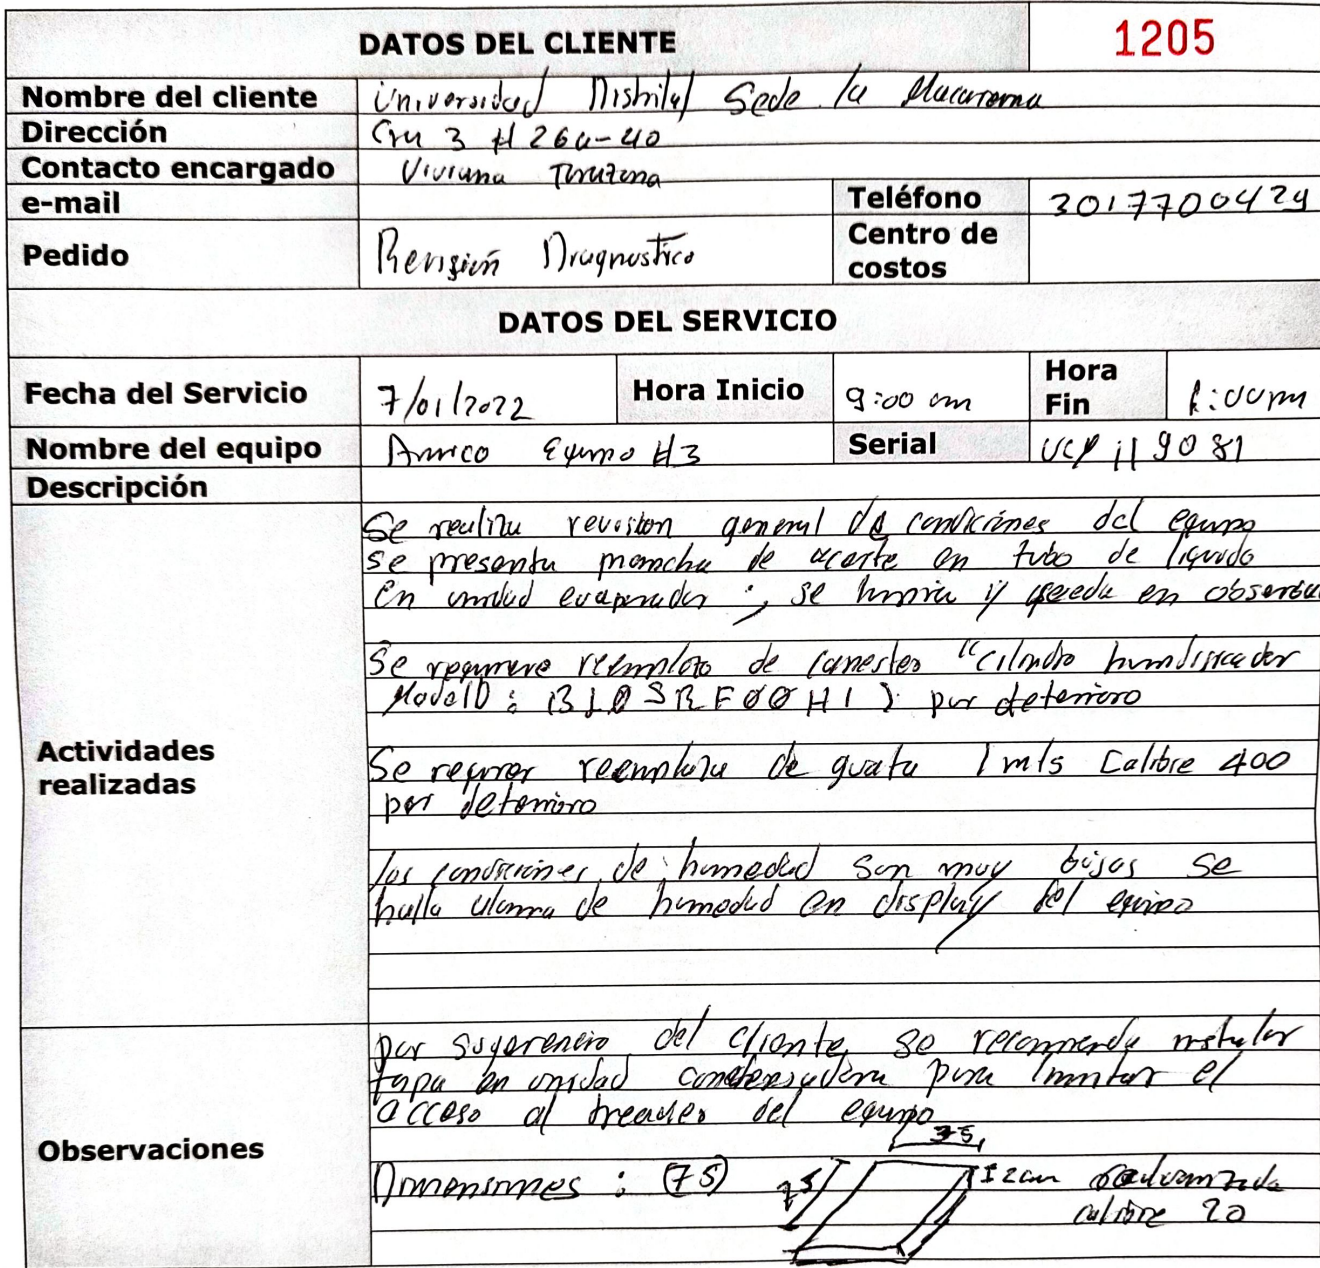 DATOS DEL CLIENTE 1205
Nombre del cliente Universidad Distrital Sede la Macarena
Dirección Cra 3 # 26a-40
Contacto encargado Viviana
e-mail Teléfono 3017700429
Pedido Revisión Diagnostico Centro de costos
DATOS DEL SERVICIO
Fecha del Servicio 7/01/2022 Hora Inicio 9:00 am Hora Fin 1:00pm
Nombre del equipo Equipo #3 Serial
Descripción
Actividades realizadas
Se realiza revision general de condiciones del equipo
se presenta mancha de aceite en tubo de liquido
En unidad evaporador ; se limpia y queda en observa
Se requiere reemplazo de canester "cilindro humidificador
Modelo : BL0SRF00H1 ) por deterioro
Se requier reemplaza de guata 1 mts Calibre 400
por deterioro
las condiciones de humedad son muy bajas se
halla alarma de humedad en display del equipo
Observaciones
por sugerencia del cliente se recomienda instalar
tapa en unidad condensadora para limitar el
acceso al breacker del equipo
75
Dimensiones : (75) 75 12cm calibre 20